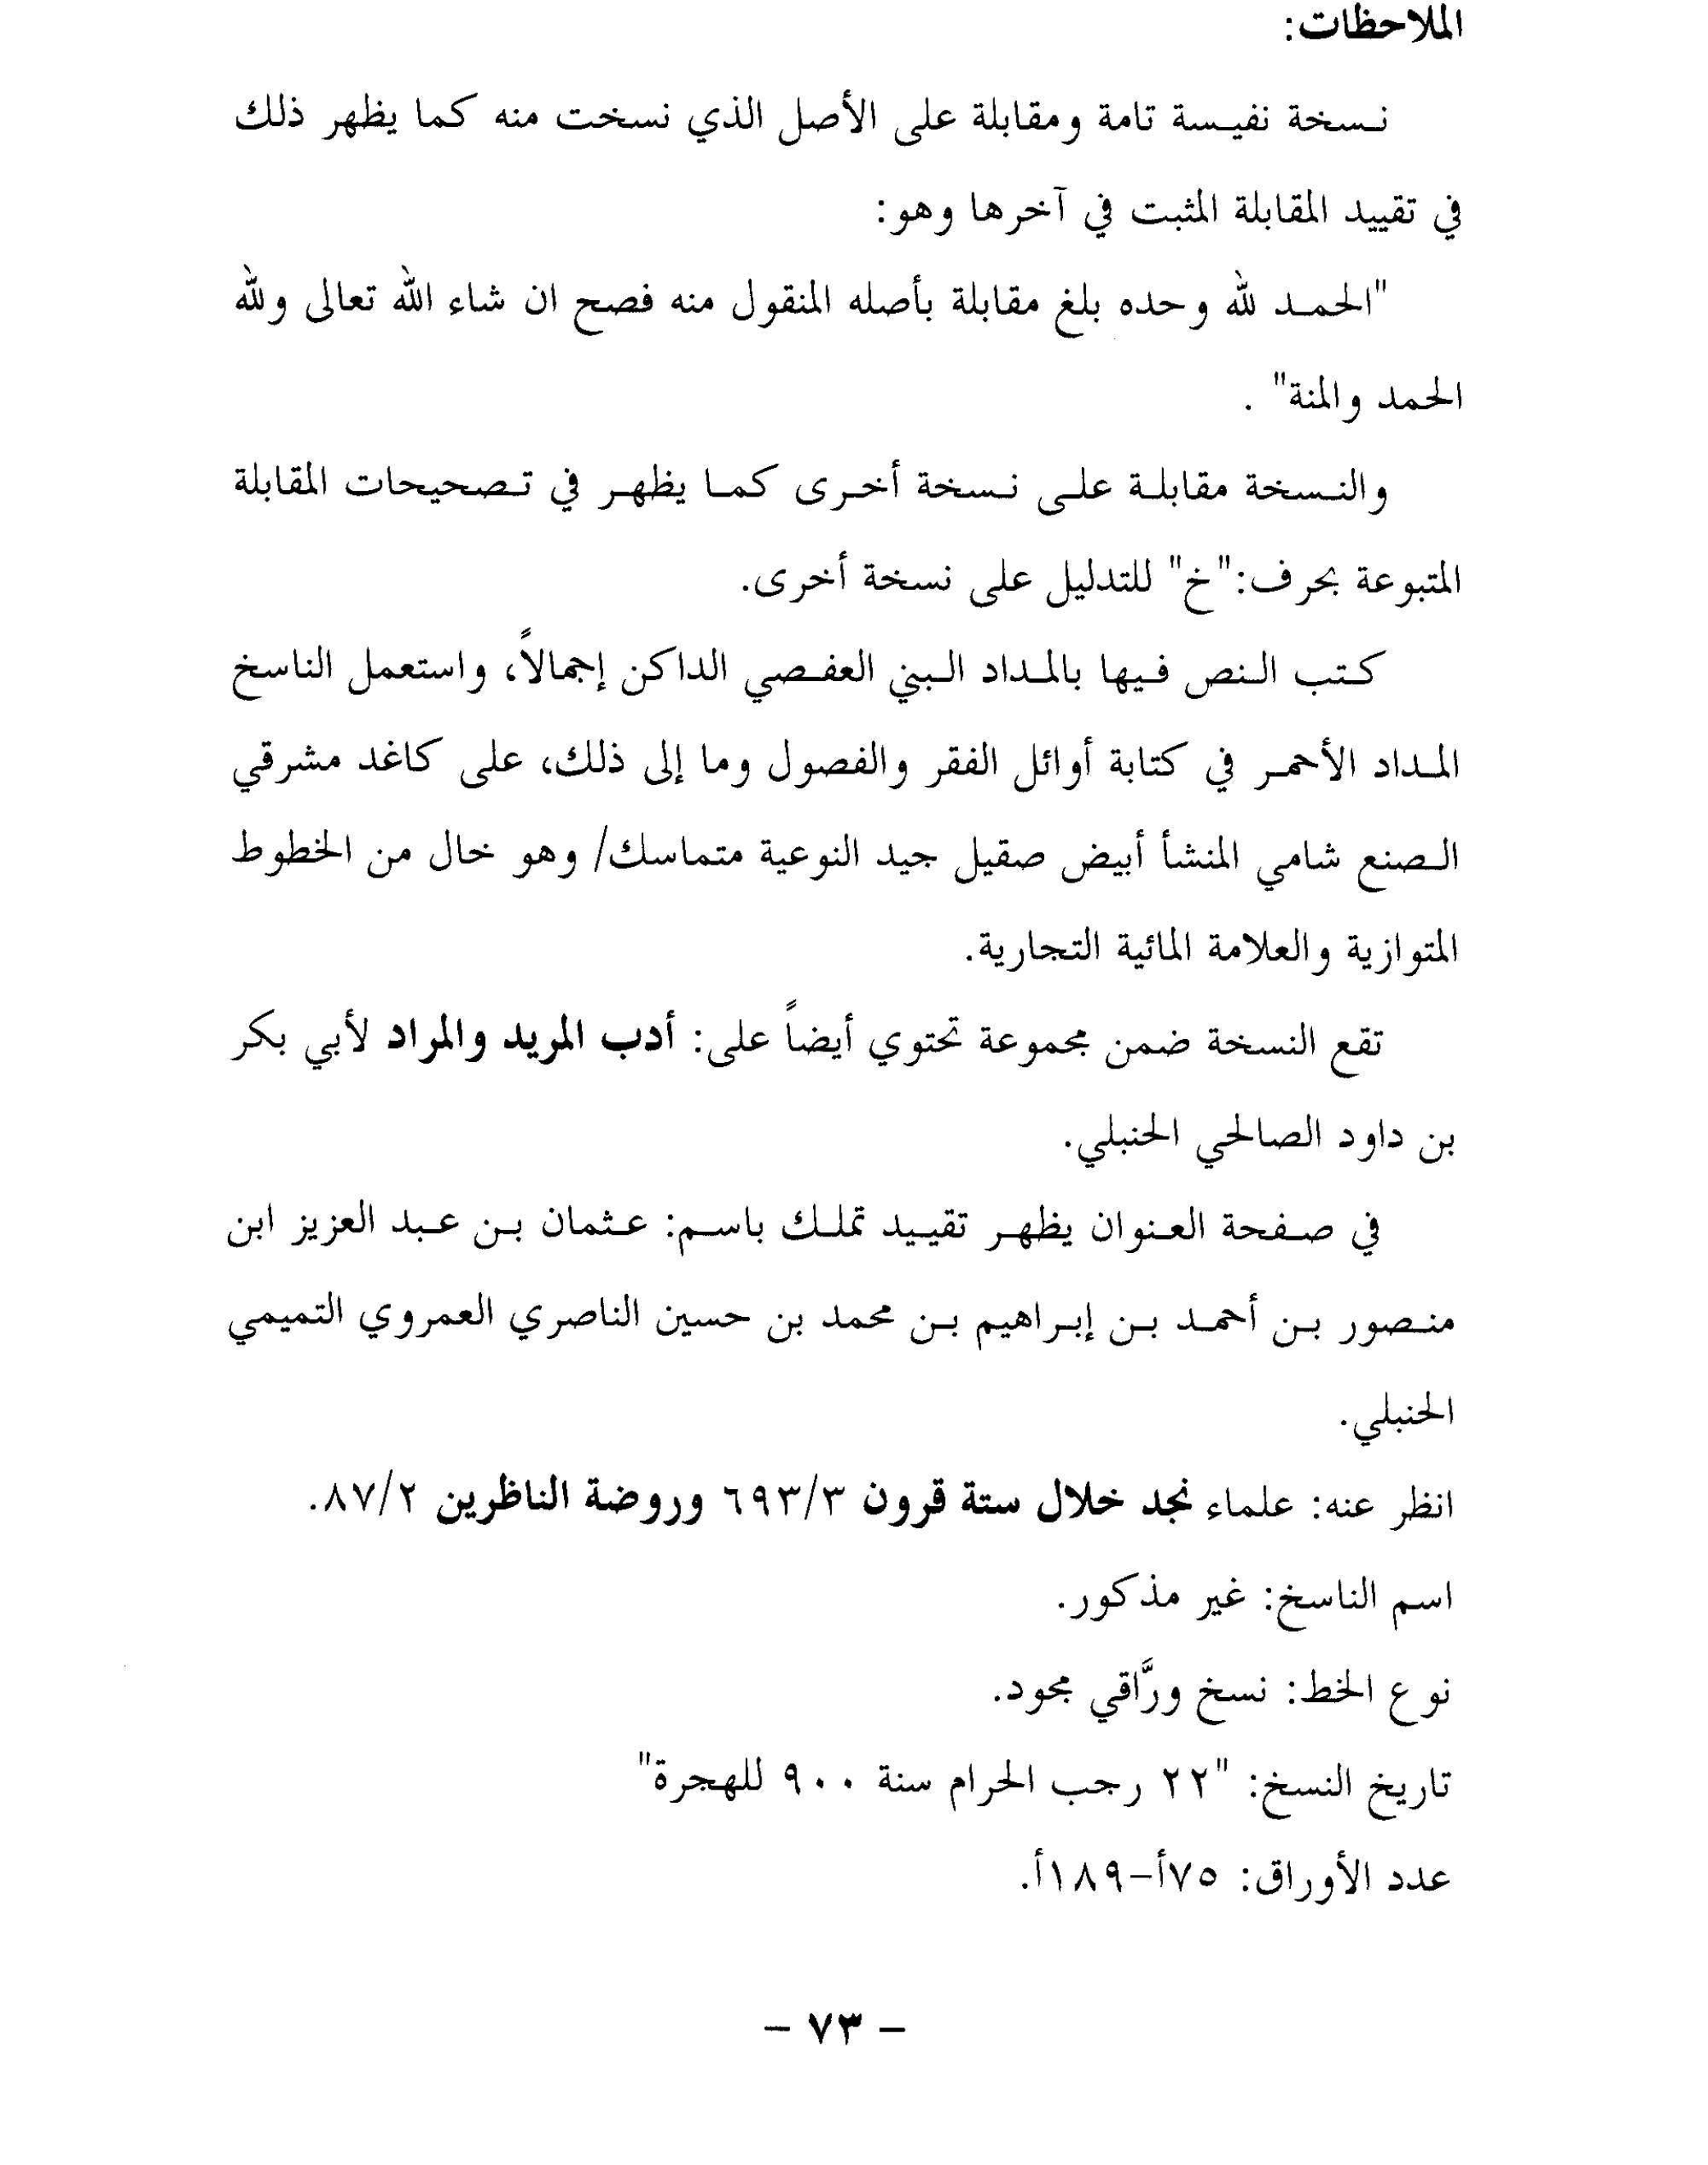 الملاحظات:
نسخة نفيسة تامة ومقابلة على الأصل الذي نسخت منه كما يظهر ذلك
في تقييد المقابلة المثبت في آخرها وهو:
"الحمد لله وحده بلغ مقابلة بأصله المنقول منه فصح ان شاء الله تعالى ولله
الحمد والمنة" .
والنسخة مقابلة على نسخة أخرى كما يظهر في تصحيحات المقابلة
المتبوعة بحرف:"خ" للتدليل على نسخة أخرى.
كتب النص فيها بالمداد البني العفصي الداكن إجمالاً، واستعمل الناسخ
المداد الأحمر في كتابة أوائل الفقر والفصول وما إلى ذلك، على كاغد مشرقي
الصنع شامي المنشأ أبيض صقيل جيد النوعية متماسك/ وهو خال من الخطوط
المتوازية والعلامة المائية التجارية.
تقع النسخة ضمن مجموعة تحتوي أيضاً على: أدب المريد والمراد لأبي بكر
بن داود الصالحي الحنبلي.
في صفحة العنوان يظهر تقييد تملك باسم: عثمان بن عبد العزيز ابن
منصور بن أحمد بن إبراهيم بن محمد بن حسين الناصري العمروي التميمي
الحنبلي.
انظر عنه: علماء نجد خلال ستة قرون ٦٩٣/٣ وروضة الناظرين ٨٧/٢.
اسم الناسخ: غير مذكور.
نوع الخط: نسخ ورَّاقي مجود.
تاريخ النسخ: "٢٢ رجب الحرام سنة ٩٠٠ للهجرة"
عدد الأوراق: ٧٥أ-١٨٩أ.
- ٧٣ -